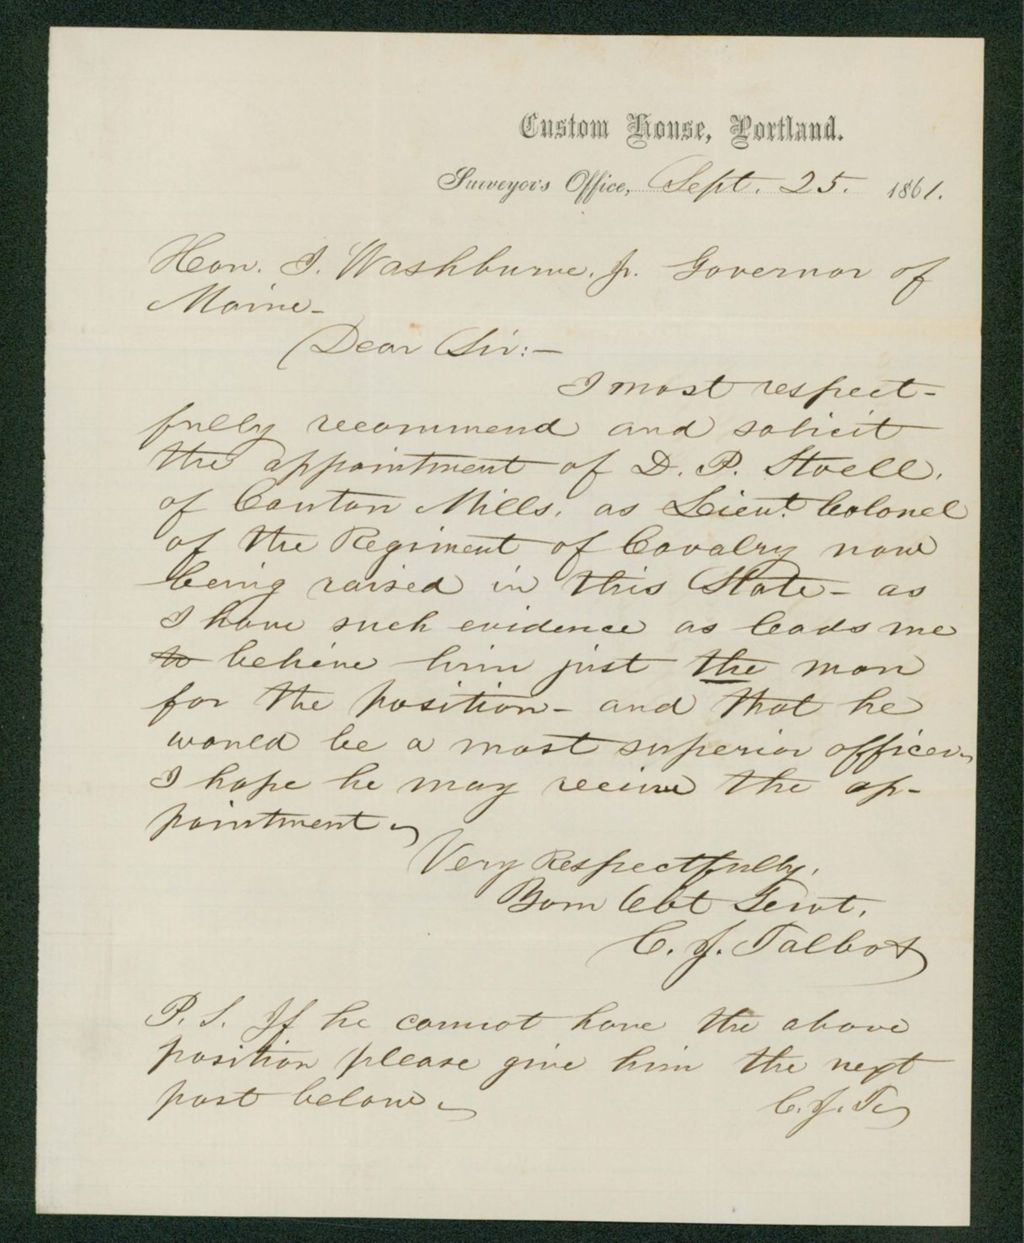 Custom House, Portland.
Surveyor's Office, Sept. 25. 1861.
Hon. I. Washburne, Jr. Governor of
Maine-
Dear Sir:-
I most respect-
fully recommend and solicit
the appointment of D. P. Stoell,
of Canton Mills, as Lieut. Colonel
of the Regiment of Cavalry now
being raised in this State- as
I have such evidence as leads me
to believe him just the man
for the position- and that he
would be a most superior officer.
I hope he may receive the ap-
pointment.
Very Respectfully,
Your Obt Servt,
C. J. Talbot
P. S. If he cannot have the above
position please give him the next
post below.
C. J. T.